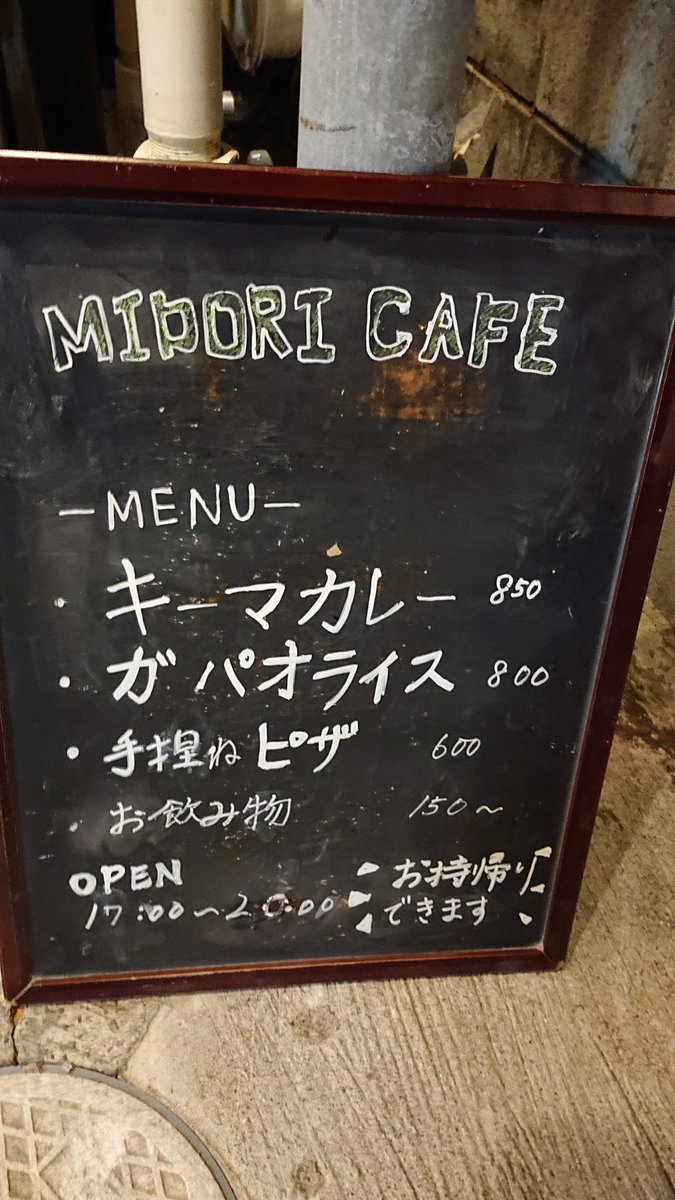 MIDORI CAFE
－MENU－
・キーマカレー 850
・ガパオライス 800
・手捏ねピザ 600
・お飲み物 150～
OPEN
17:00～20:00
お持帰り
できます